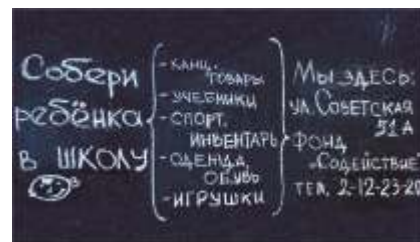 Собери
ребёнка
в школу
- канц.
товары
- учебники
- спорт.
инвентарь
- одежда,
обувь
- игрушки
Мы здесь:
ул. Советская
51а
Фонд
"Содействие"
тел. 2-12-23-20